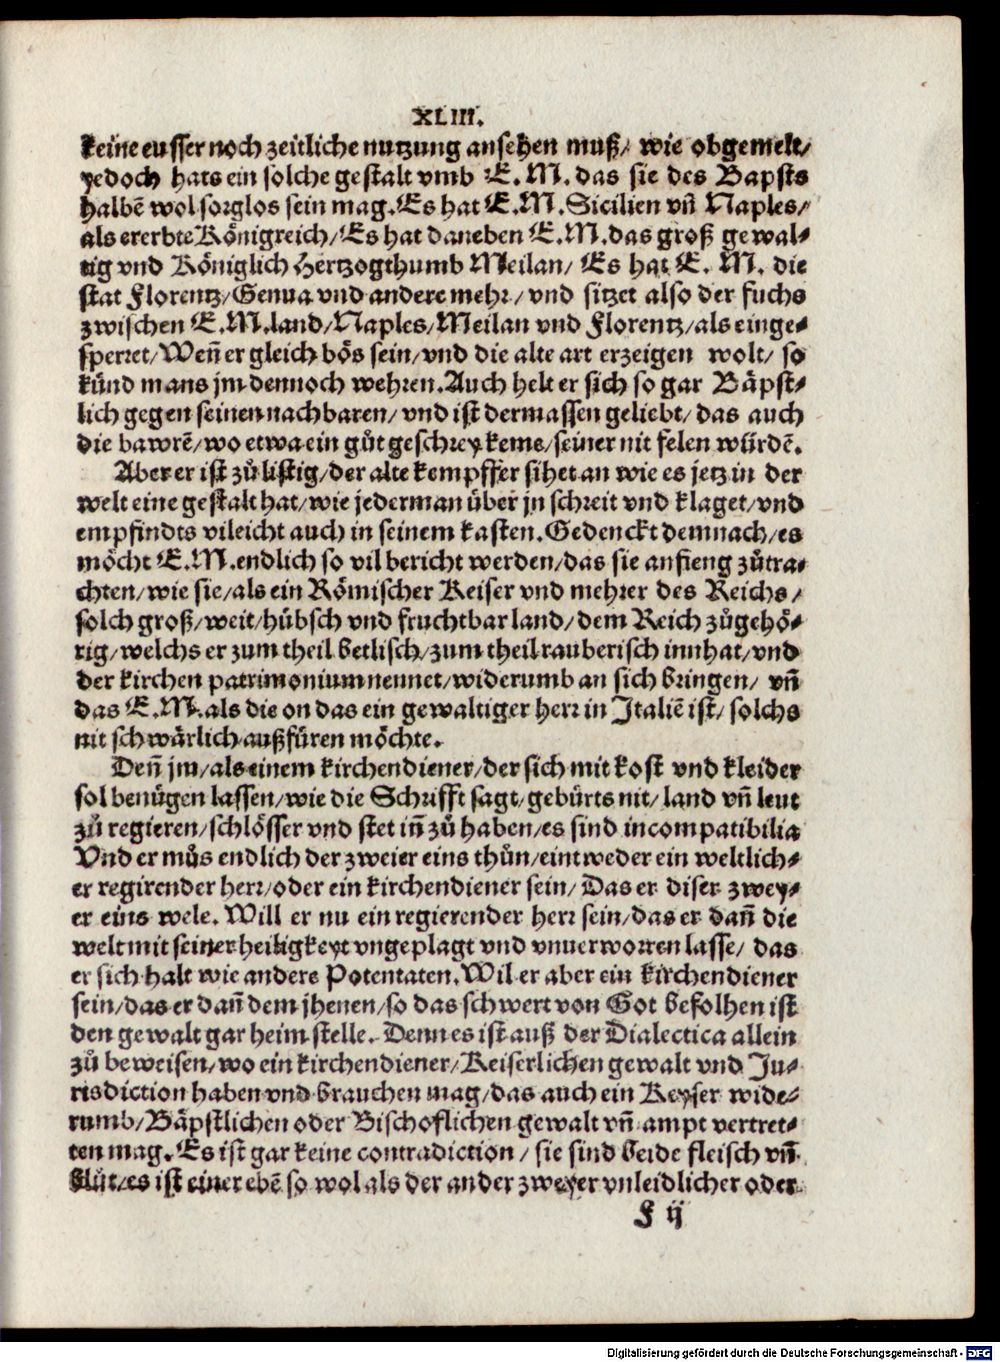 XLIII.
keine eusser noch zeitliche nutzung ansehen muß/ wie obgemelt/
yedoch hats ein solche gestalt vmb E. M. das sie des Bapsts
halbē wol sorglos sein mag. Es hat E.M. Sicilien vn̄ Naples/
als ererbte Königreich/ Es hat daneben E.M. das groß gewal⸗
tig vnd Königlich Hertzogthumb Meilan/ Es hat E. M. die
stat Florentz/ Genua vnd andere mehr/ vnd sitzet also der fuchs
zwischen E.M. land/ Naples/ Meilan vnd Florentz/ als einge⸗
sperret/ Wen̄ er gleich bös sein/ vnd die alte art erzeigen wolt/ so
künd mans jm dennoch wehren. Auch helt er sich so gar Bäpst⸗
lich gegen seinen nachbaren/ vnd ist dermassen geliebt/ das auch
die bawrē/ wo etwa ein gůt geschrey keme/ seiner nit felen würdē.
Aber er ist zů listig/ der alte kempffer sihet an wie es jetz in der
welt eine gestalt hat/ wie jederman über jn schreit vnd klaget/ vnd
empfindts vileicht auch in seinem kasten. Gedenckt demnach/ es
möcht E.M. endlich so vil bericht werden/ das sie anfieng zůtra⸗
chten/ wie sie/ als ein Römischer Keiser vnd mehrer des Reichs/
solch groß/ weit/ hübsch vnd fruchtbar land/ dem Reich zůgehö⸗
rig/ welchs er zum theil betlisch/ zum theil rauberisch innhat/ vnd
der kirchen patrimonium nennet/ widerumb an sich bringen/ vn̄
das E.M. als die on das ein gewaltiger herr in Italiē ist/ solchs
nit schwärlich außfüren möchte.
Den̄ jm/ als einem kirchendiener/ der sich mit kost vnd kleider
sol benügen lassen/ wie die Schrifft sagt/ gebürts nit/ land vn̄ leut
zů regieren/ schlösser vnd stet in̄ zů haben/ es sind incompatibilia
Vnd er můs endlich der zweier eins thůn/ eintweder ein weltlich⸗
er regirender herr/ oder ein kirchendiener sein/ Das er diser zwey⸗
er eins wele. Will er nu ein regierender herr sein/ das er dan̄ die
welt mit seiner heiligkeyt vngeplagt vnd vnuerworren lasse/ das
er sich halt wie andere Potentaten. Wil er aber ein kirchendiener
sein/ das er dan̄ dem jhenen/ so das schwert von Got befolhen ist
den gewalt gar heim stelle. Denn es ist auß der Dialectica allein
zů beweisen/ wo ein kirchendiener/ Keiserlichen gewalt vnd Ju⸗
risdiction haben vnd brauchen mag/ das auch ein Keyser wide⸗
rumb/ Bäpstlichen oder Bischoflichen gewalt vn̄ ampt vertret⸗
ten mag. Es ist gar keine contradiction/ sie sind beide fleisch vn̄
blůt/ es ist einer ebē so wol als der ander zweyer vnleidlicher oder
F ij
Digitalisierung gefördert durch die Deutsche Forschungsgemeinschaft - DFG